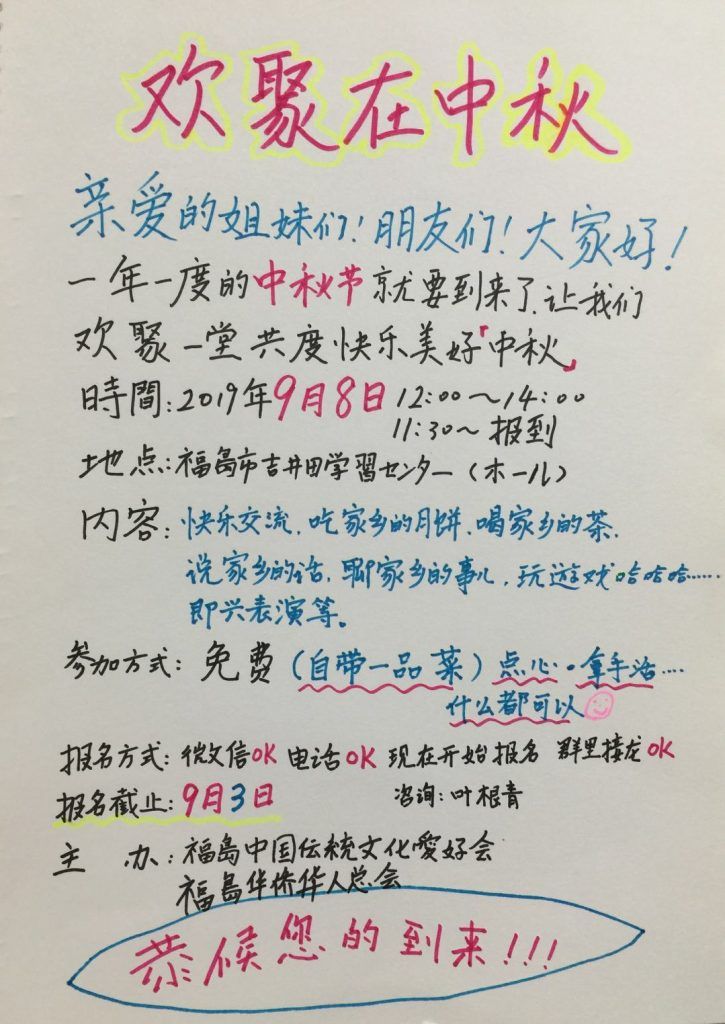 欢聚在中秋
亲爱的姐妹们！朋友们！大家好！
一年一度的中秋节就要到来了.让我们
欢聚一堂共度快乐美好「中秋」
時間：2019年9月8日 12:00～14:00
11:30～报到
地点：福島市吉井田学習センター（ホール）
内容：快乐交流.吃家乡的月饼.喝家乡的茶.
说家乡的话.聊家乡的事儿.玩遊戏.哈哈哈……
即兴表演等。
参加方式：免费（自带一品菜）点心·拿手活....
什么都可以
报名方式：微信OK 电话OK 现在开始报名 群里接龙OK
报名截止：9月3日 咨询：叶根青
主办：福島中国伝統文化愛好会
福島华侨华人总会
恭候您的到来！！！